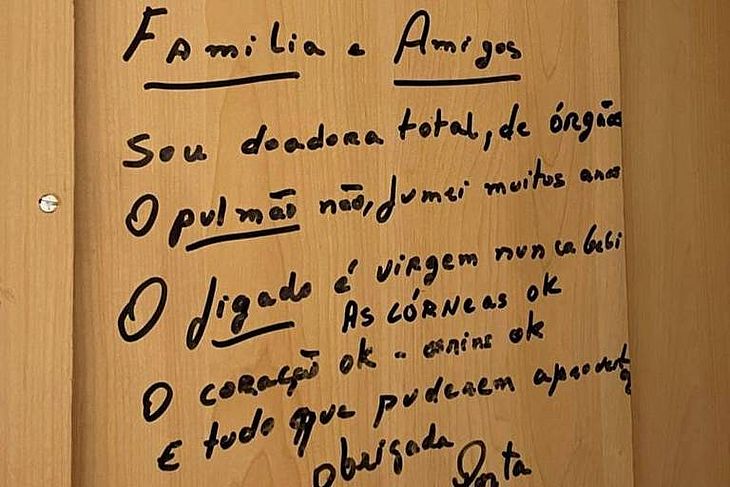 Familia e Amigos
Sou doadora total, de órgãos
O pulmão não, fumei muitos anos
O figado é virgem nunca bebi
As córneas ok
O coração ok - ok
E tudo que puderem
Obrigada